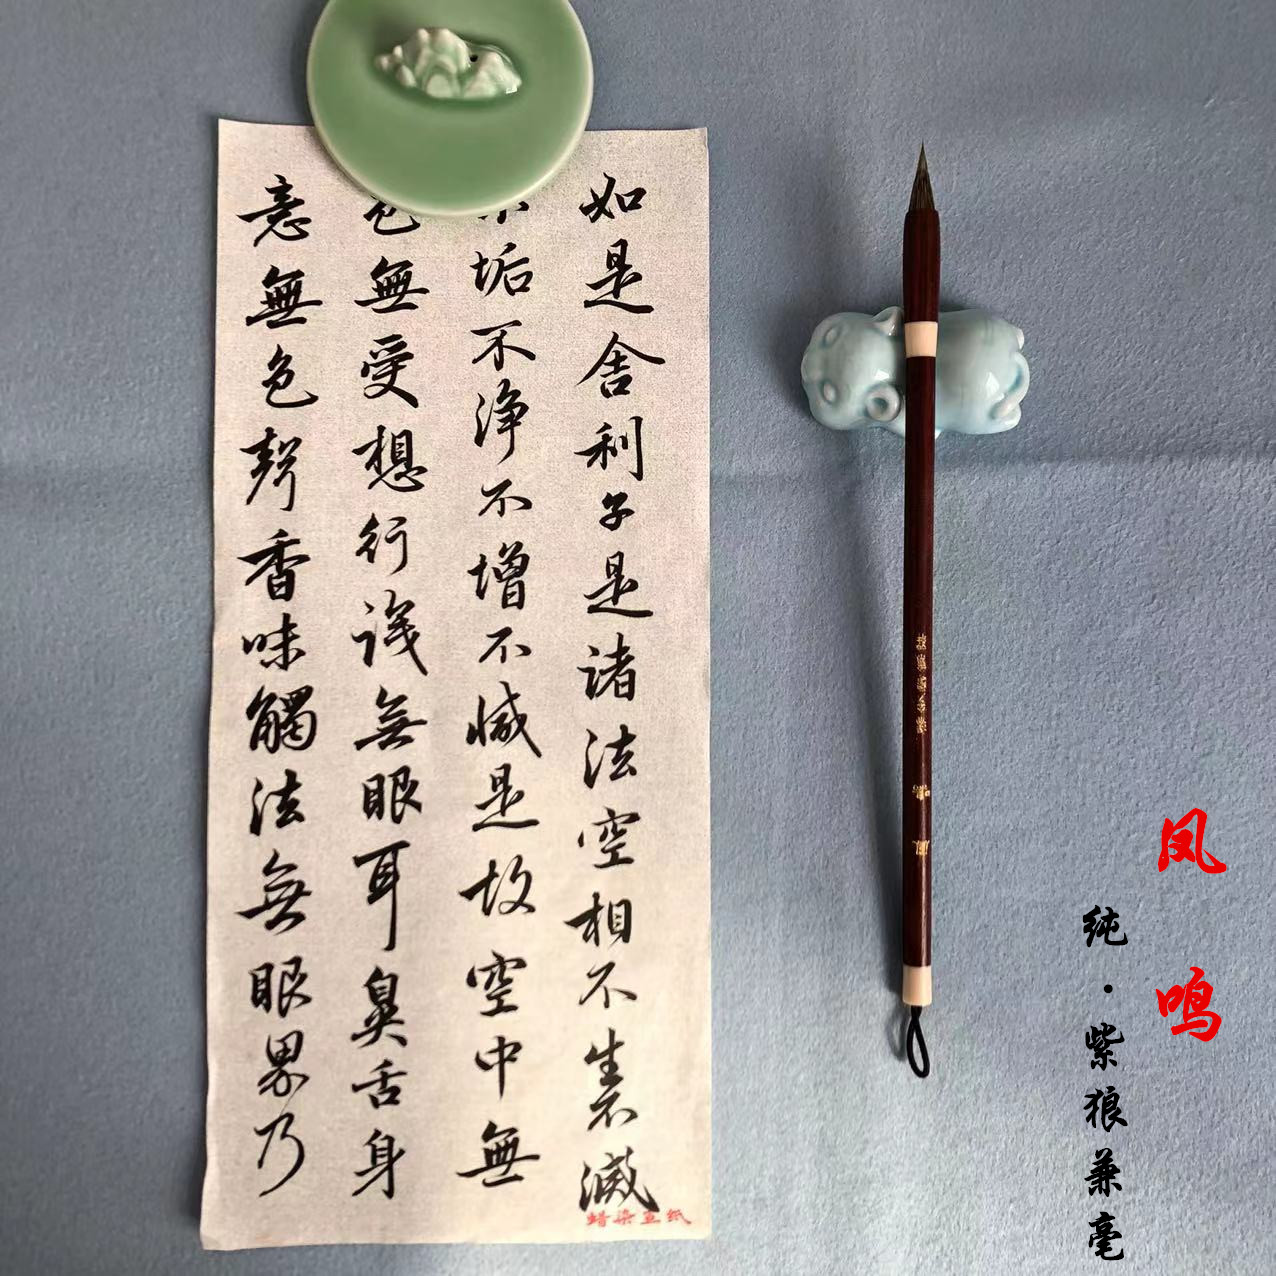 如是舍利子是诸法空相不生不滅
不垢不净不增不减是故空中無
色無受想行識無眼耳鼻舌身
意無色聲香味觸法無眼界乃
蜡染宣纸
鳳鳴
凤鸣
纯·紫狼兼毫